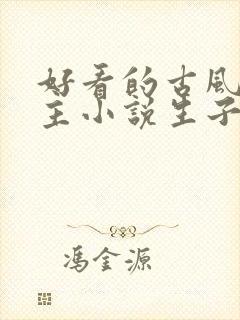 好看的古风
主小说生子
冯金源